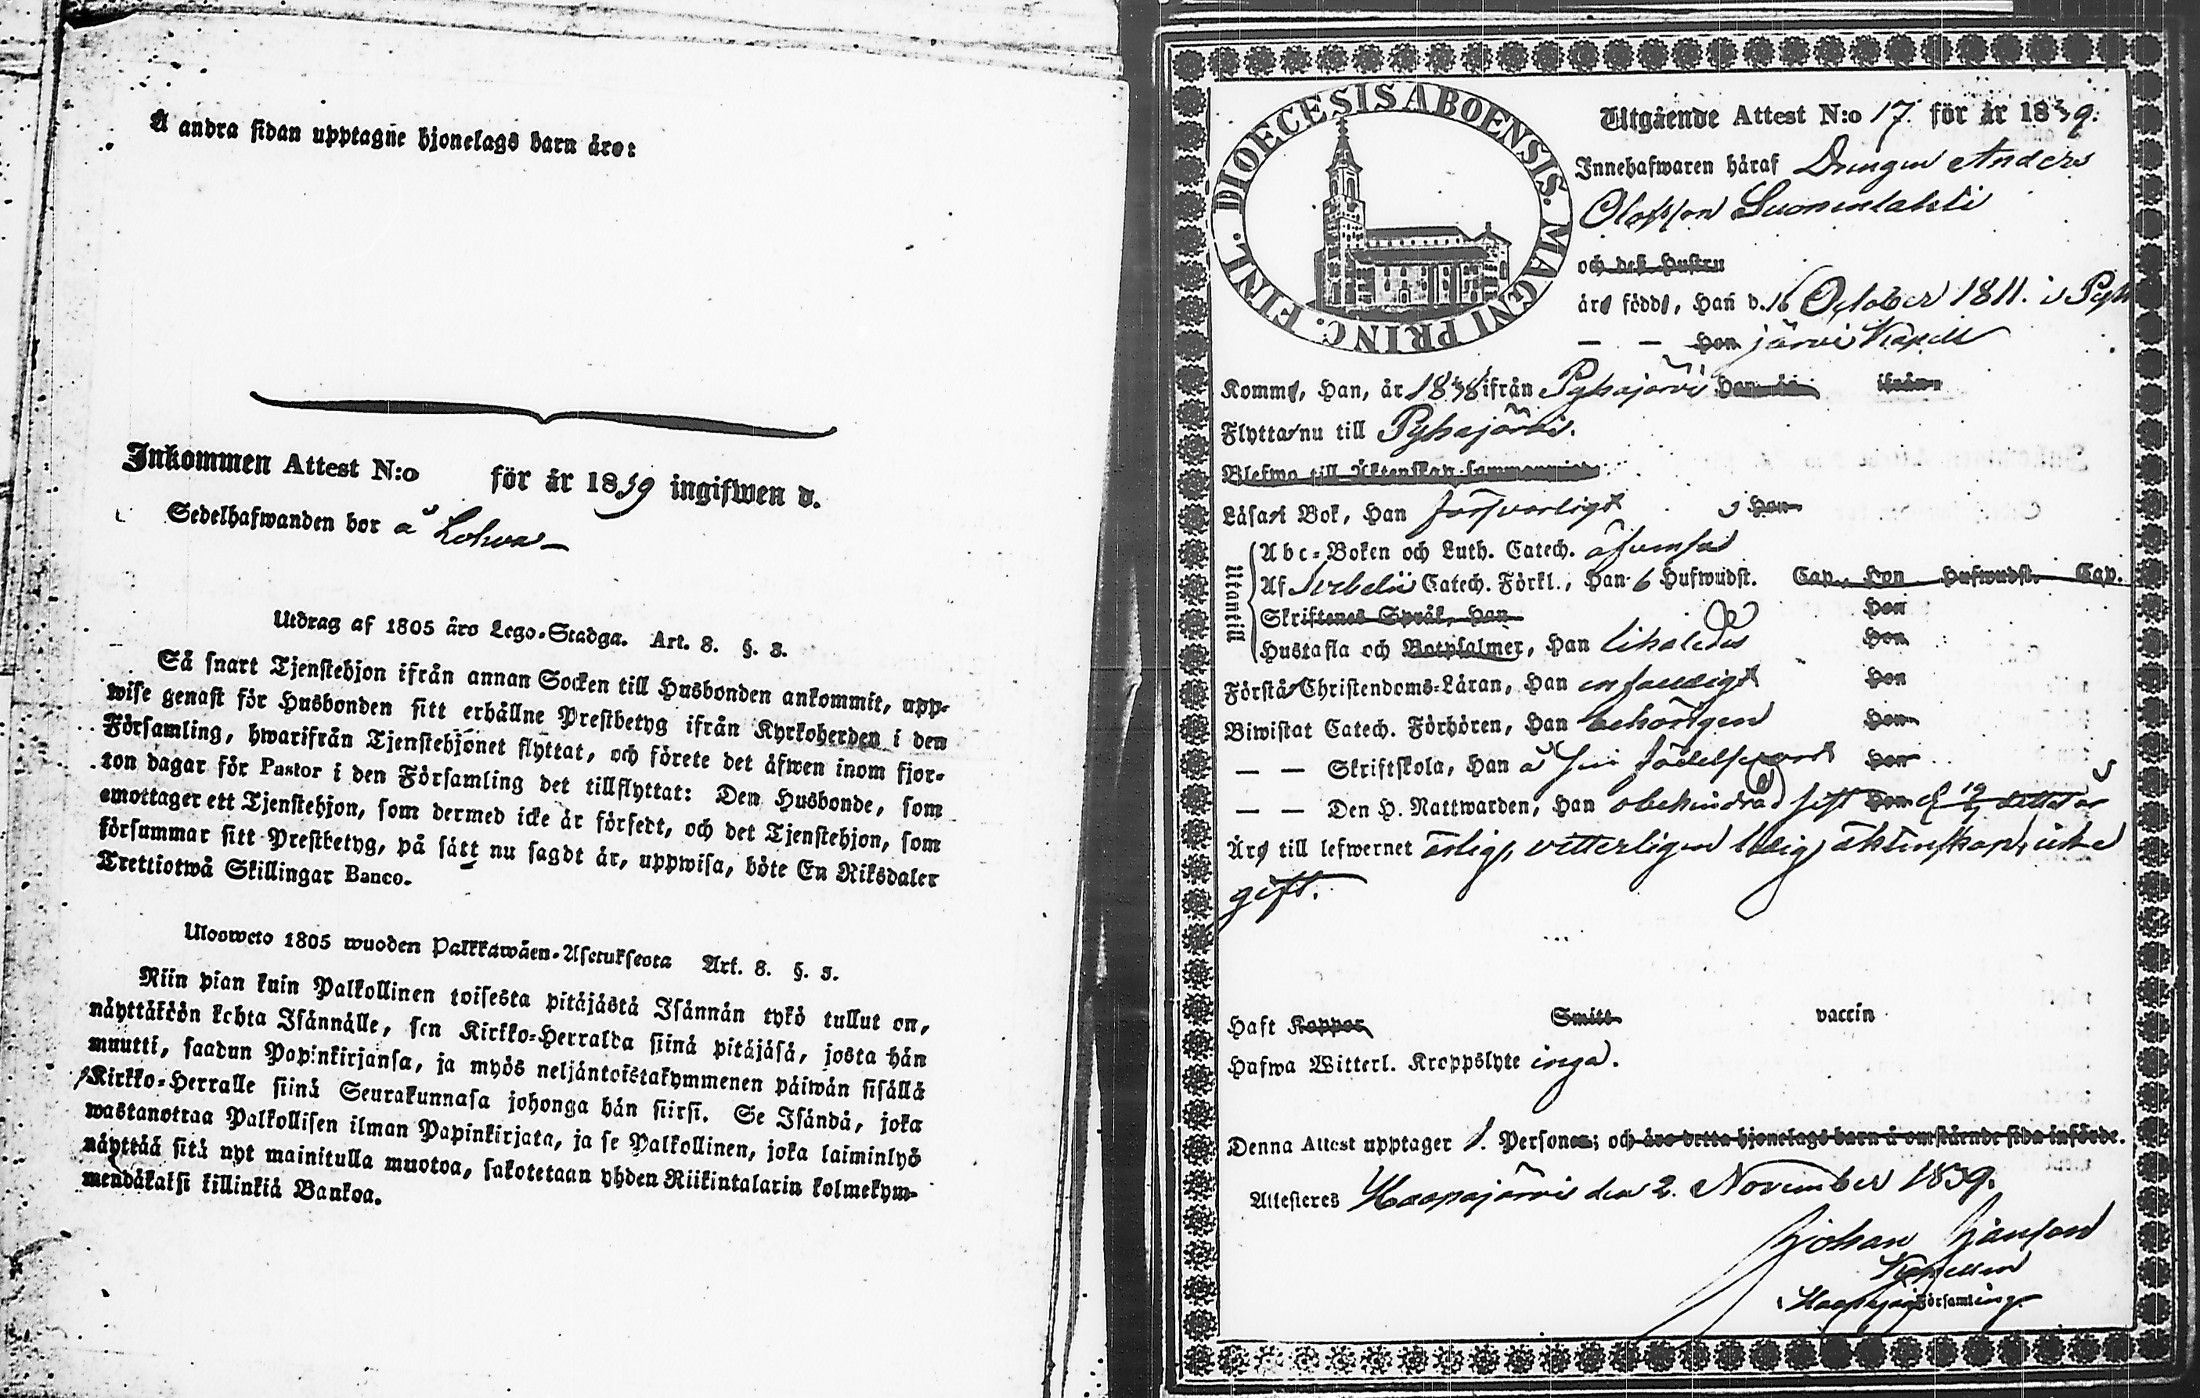 Å andra sidan upptagne hjonelags barn äro:
Inkommen Attest N:o för år 1839 ingifwen d.
Sedelhafwanden bor å Lohva
Utdrag af 1805 års Lego-Stadga. Art. 8. §. 3.
Så snart Tjenstehjon ifrån annan Socken till Husbonden ankommit, upp-
wise genast för Husbonden sitt erhållne Prestbetyg ifrån Kyrkoherden i den
Församling, hwarifrån Tjenstehjonet flyttat, och förete det äfwen inom fjor-
ton dagar för Pastor i den Församling det tillflyttat: Den Husbonde, som
emottager ett Tjenstehjon, som dermed icke är försedt, och det Tjenstehjon, som
försummar sitt Prestbetyg, på sätt nu sagdt är, uppwisa, böte En Riksdaler
Trettiotwå Skillingar Banco.
Ulosweto 1805 wuoden Palkkawäen-Asetuksesta Art. 8. §. 3.
Niin pian kuin Palkollinen toisesta pitäjästä Isännän tykö tullut on,
näyttäköön kohta Isännälle, sen Kirkko-Herralda siinä pitäjäsä, josta hän
muutti, saadun Papinkirjansa, ja myös neljäntoistakymmenen päiwän sisällä
Kirkko-Herralle siinä Seurakunnasa johonga hän siirsi. Se Isändä, joka
wastanottaa Palkollisen ilman Papinkirjata, ja se Palkollinen, joka laiminlyö
näyttää sitä nyt mainitulla muotoa, sakotetaan yhden Riikintalarin kolmekym-
mendäkaksi killinkiä Bankoa.
DIOECESIS ABOENSIS. MAGNI PRINC. FINL.
Utgående Attest N:o 17 för år 1839.
Innehafwaren häraf Drengen Anders
Olofsson Suomenlahti
och deß hustru
äro födde, Han d. 16 October 1811. i Pyhä
— — Hon järvi Kapell
Komme, Han, år 1838 ifrån Pyhäjärvi Hon år ifrån
Flytta nu till Pyhäjärvi.
Blefwo till Äktenskap sammanwigde
Läsa i Bok, Han försvarligt Hon
Utantill
Abc-Boken och Luth. Catech. äfvenså
Af Svebelii Catech. Förkl., Han 6 Hufwudst. Cap., Hon Hufwudst. Cap.
Skriftenes Språk, Han Hon
Hustafla och Botpsalmer, Han likaledes Hon
Förstå Christendoms-Läran, Han enfaldigt Hon
Biwistat Catech. Förhören, Han behörigen Hon
— — Skriftskola, Han å sin födelseort Hon
— — Den H. Nattwarden, Han obehindrad sist Hon d
Äro till lefwernet ärlig, vetterligen ledig äktenskap, icke
gift.
Haft Koppor Smitt vaccin
Hafwa Witterl. Kroppslyte inga.
Denna Attest upptager 1. Personer; och äro detta hjonelags barn å omstående sida införde.
Attesteres Haapajärvi den 2. November 1839.
Johan
Capellan
i Haapajärvi Församling.